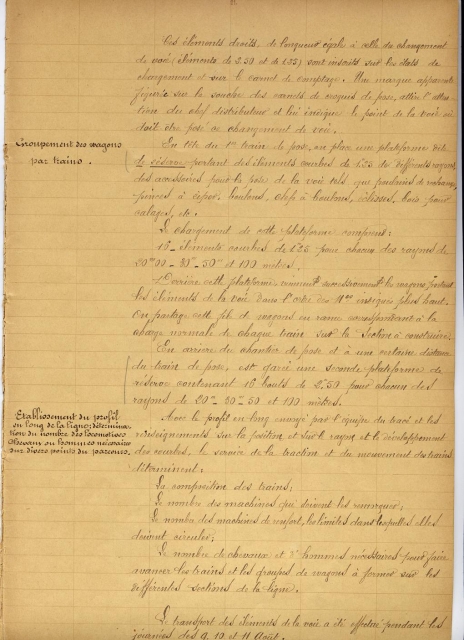 Ces éléments droits, de longueur égale à celle du changement
de voie (éléments de 2.50 et de 1.25) sont inscrits sur les états de
chargement et sur le carnet de comptage. Une marque apparente
figurée sur la souche des carnets de coupons de pose, attire l'atten-
tion du chef distributeur et lui indique le point de la voie où
doit être posé ce changement de voie.
Groupement des wagons
par trains.
En tête du 1er train de pose, on place une plateforme dite
de réserve portant des éléments courbes de 1.25 de différents rayons,
des accessoires pour la pose de la voie tels que
pinces à riper, boulons, clefs à boulons, éclisses, bois pour
calages, etc.
Le chargement de cette plateforme comprend:
16 éléments courbes de 1.25 pour chacun des rayons de
20m00 - 30m - 50m et 100 mètres.
Derrière cette plateforme viennent successivement les wagons portant
les éléments de la voie dans l'ordre des Nos indiqués plus haut.
On partage cette file de wagons en rames correspondant à la
charge normale de chaque train sur la section à construire.
En arrière du chantier de pose et à une certaine distance
du train de pose, est garée une seconde plateforme de
réserve contenant 16 bouts de 2.50 pour chacun des
rayons de 20m - 30m - 50 et 100 mètres.
Etablissement du profil
en long de la ligne; détermina-
tion du nombre des locomotives
chevaux ou hommes nécessaires
sur divers points du parcours.
Avec le profil en long envoyé par l'équipe du tracé et les
renseignements sur la position et sur le rayon et le développement
des courbes, le service de la traction et du mouvement des trains
déterminent:
La composition des trains;
Le nombre des machines qui doivent les remorquer;
Le nombre des machines de renfort, les limites dans lesquelles elles
doivent circuler;
Le nombre de chevaux et d'hommes nécessaires pour faire
avancer les trains et les groupes de wagons à former sur les
différentes sections de la ligne.
Le transport des éléments de la voie a été effectué pendant les
journées des 9, 10 et 11 Août.